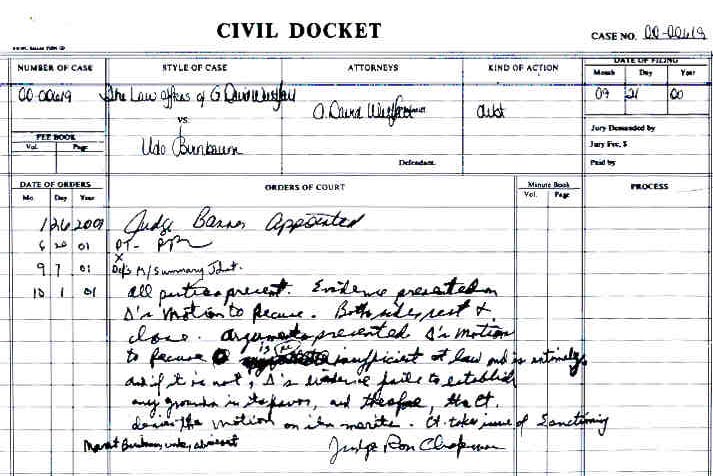 CIVIL DOCKET
CASE NO. 00-00619
NUMBER OF CASE
STYLE OF CASE
ATTORNEYS
KIND OF ACTION
DATE OF FILING
Month Day Year
00-00619
The Law offices of G David Westfall
vs.
Udo Birnbaum
G. David Westfall
Defendant.
debt
09 21 00
Jury Demanded by
Jury Fee, $
Paid by
FEE BOOK
Vol. Page
DATE OF ORDERS
Mo. Day Year
ORDERS OF COURT
Minute Book
Vol. Page
PROCESS
1 26 2001 Judge Banner Appointed
6 20 01 PT-
9 7 01 Def's M/Summary Jdmt.
10 1 01 All parties present. Evidence presented on
Δ's Motion to Recuse. Both sides rest &
close. Arguments presented Δ's motion
to Recuse is insufficient at law and is untimely,
and if it is not, Δ's evidence fails to establish
any grounds in its favor, and therefore, the Ct.
denies the motion on its merits. Ct. takes issue of Sanctioning
Judge Ron Chapman
absent